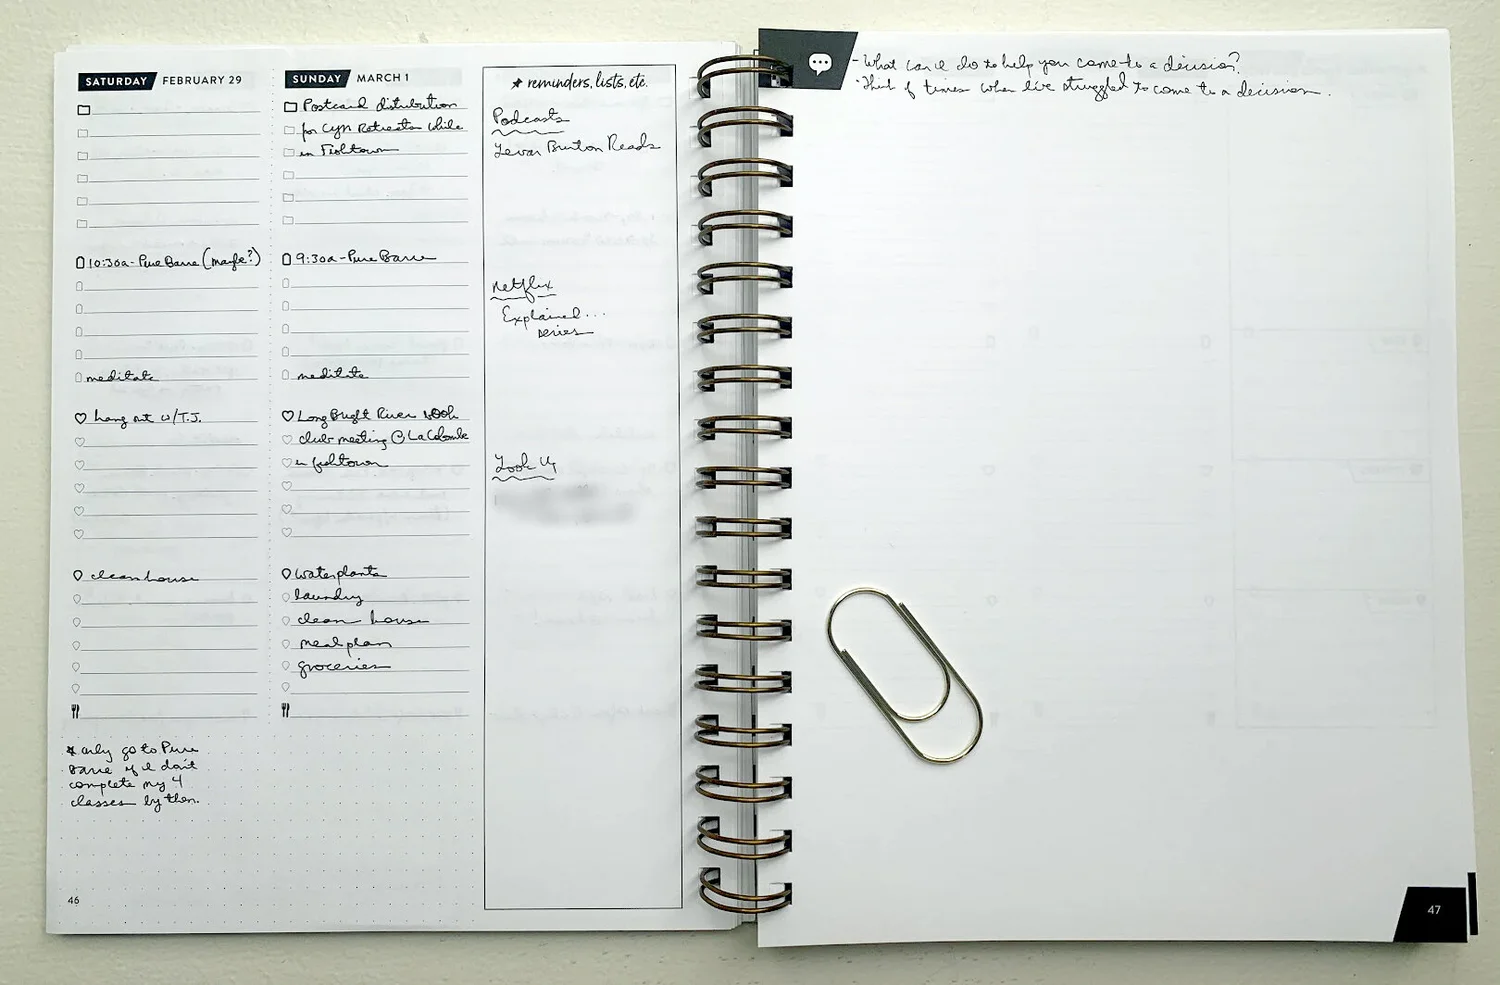 SATURDAY FEBRUARY 29
10:30a - Pure Barre (maybe?)
meditate
hang out w/T.J.
clean house
* only go to Pure
Barre if I don't
complete my 4
classes by then.
46
SUNDAY MARCH 1
Postcard distribution
for Gym Retreats while
in Fishtown
9:30a - Pure Barre
meditate
Long Bright River book
club meeting @ La Colombe
in fishtown
water plants
laundry
clean house
meal plan
groceries
* reminders, lists, etc.
Podcasts
Levar Burton Reads
Netflix
Explained...
series
Look Up
- What can I do to help you come to a decision?
· Think of times when I've struggled to come to a decision.
47